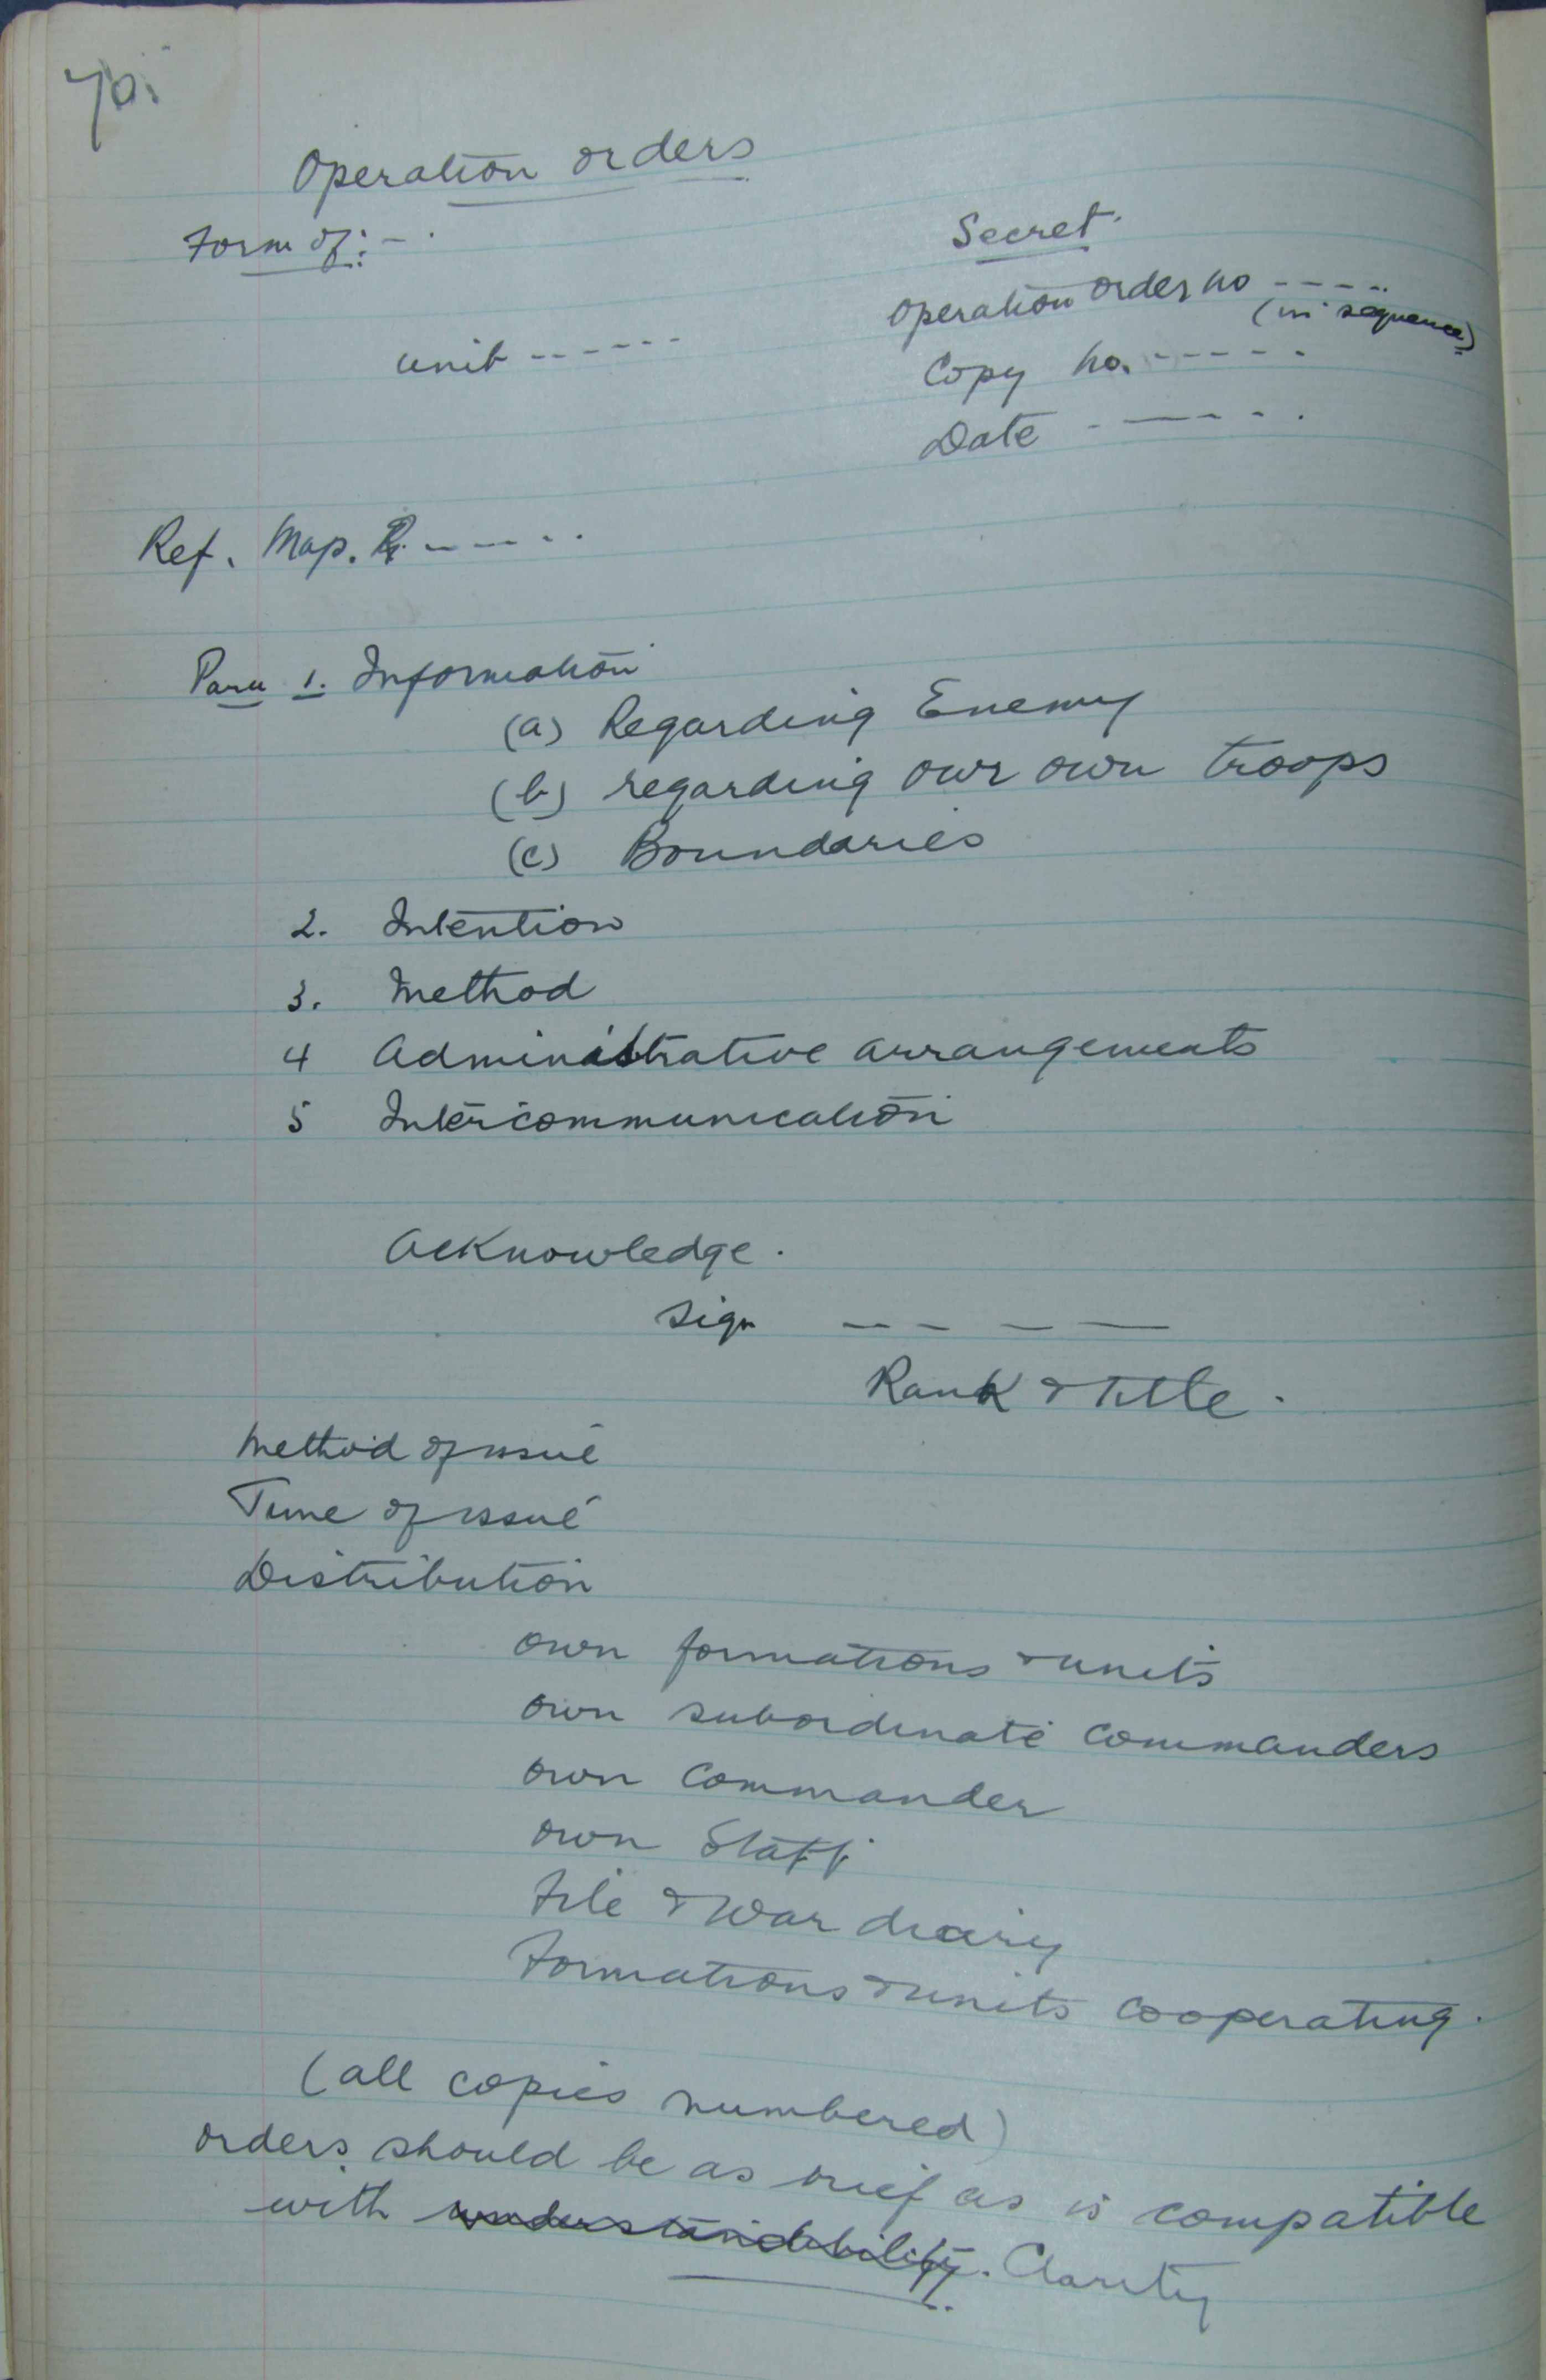 70.
Operation orders
Form of:- .
Secret.
Operation order no -----
(in sequence)
unit ------
Copy no. -----
Date ------
Ref. Map. -----
Para 1. Information
(a) Regarding Enemy
(b) regarding our own troops
(c) Boundaries
2. Intention
3. Method
4 Administrative arrangements
5 Intercommunication
Acknowledge.
Sign -----
Rank & Title.
Method of issue
Time of issue
Distribution
own formations & units
own subordinate commanders
own commander
own Staff
File & War diary
Formations & units cooperating.
(all copies numbered)
orders should be as brief as is compatible
with understandability. Clarity